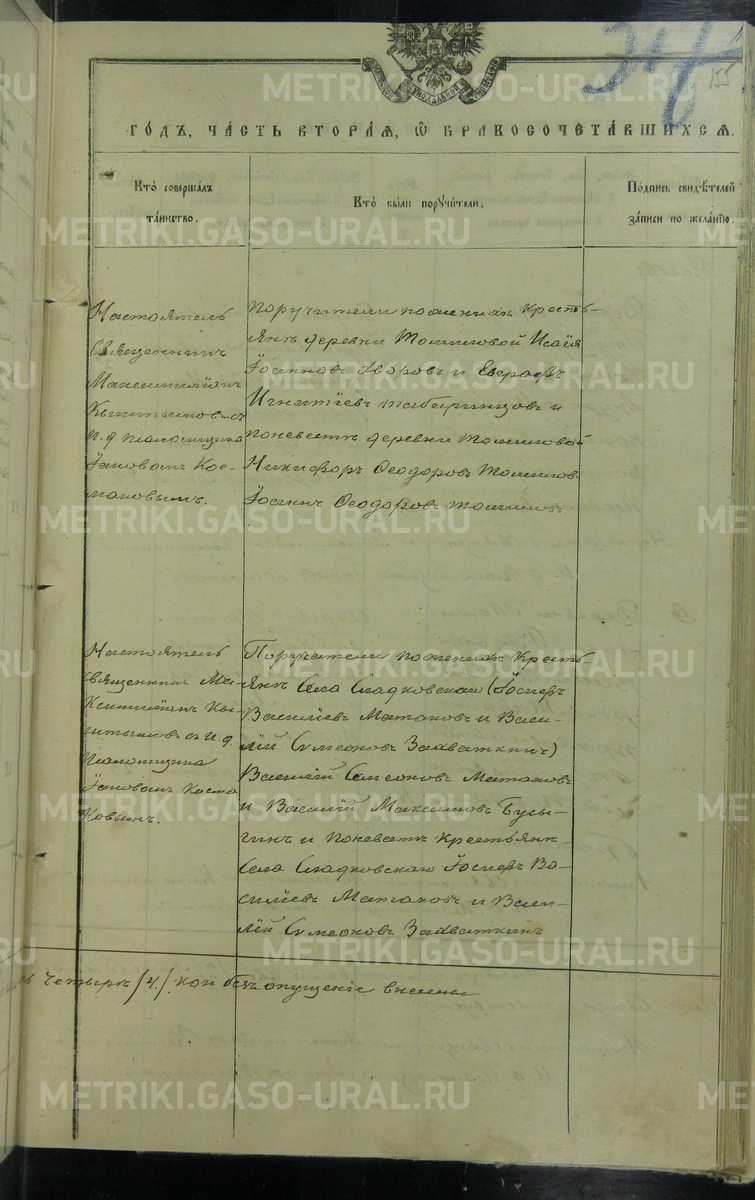 155
ГОДЪ, ЧАСТЬ ВТОРАЯ, Ѿ БРАКОСОЧЕТАВШИХСЯ.
Кто совершалъ таинство.
Кто были поручители.
Подпись свидѣтелей записи по желанію.
Настоятель
Священникъ
Максимиліанъ
съ
и.д. псаломщика
Іаковомъ Кос-
маковымъ.
Поручители по женихѣ кресть-
яне деревни Томиловой Исаія
Іоанновъ и
Игнатіевъ Таборинцовъ и
по невѣстѣ деревни Томиловой
Никифоръ Ѳеодоровъ Томиловъ
Іоаннъ Ѳеодоровъ Томиловъ
Настоятель
священникъ Ма-
ксимиліанъ
съ и.д.
псаломщика
Іаковомъ Косма
ковымъ.
Поручители по женихѣ кресть
яне села Сладковскаго (Іосифъ
Василіевъ Матаковъ и Васи-
лій Симеоновъ Захваткинъ)
Василій Симеоновъ Матаковъ
и Василій Максимовъ Бусы-
гинъ и по невѣстѣ крестьяне
села Сладковскаго Іосифъ Ва-
силіевъ Матаковъ и Васи-
лій Симеоновъ Захваткинъ
четыре /4/ кои безъ опущенія внесены
METRIKI.GASO-URAL.RU